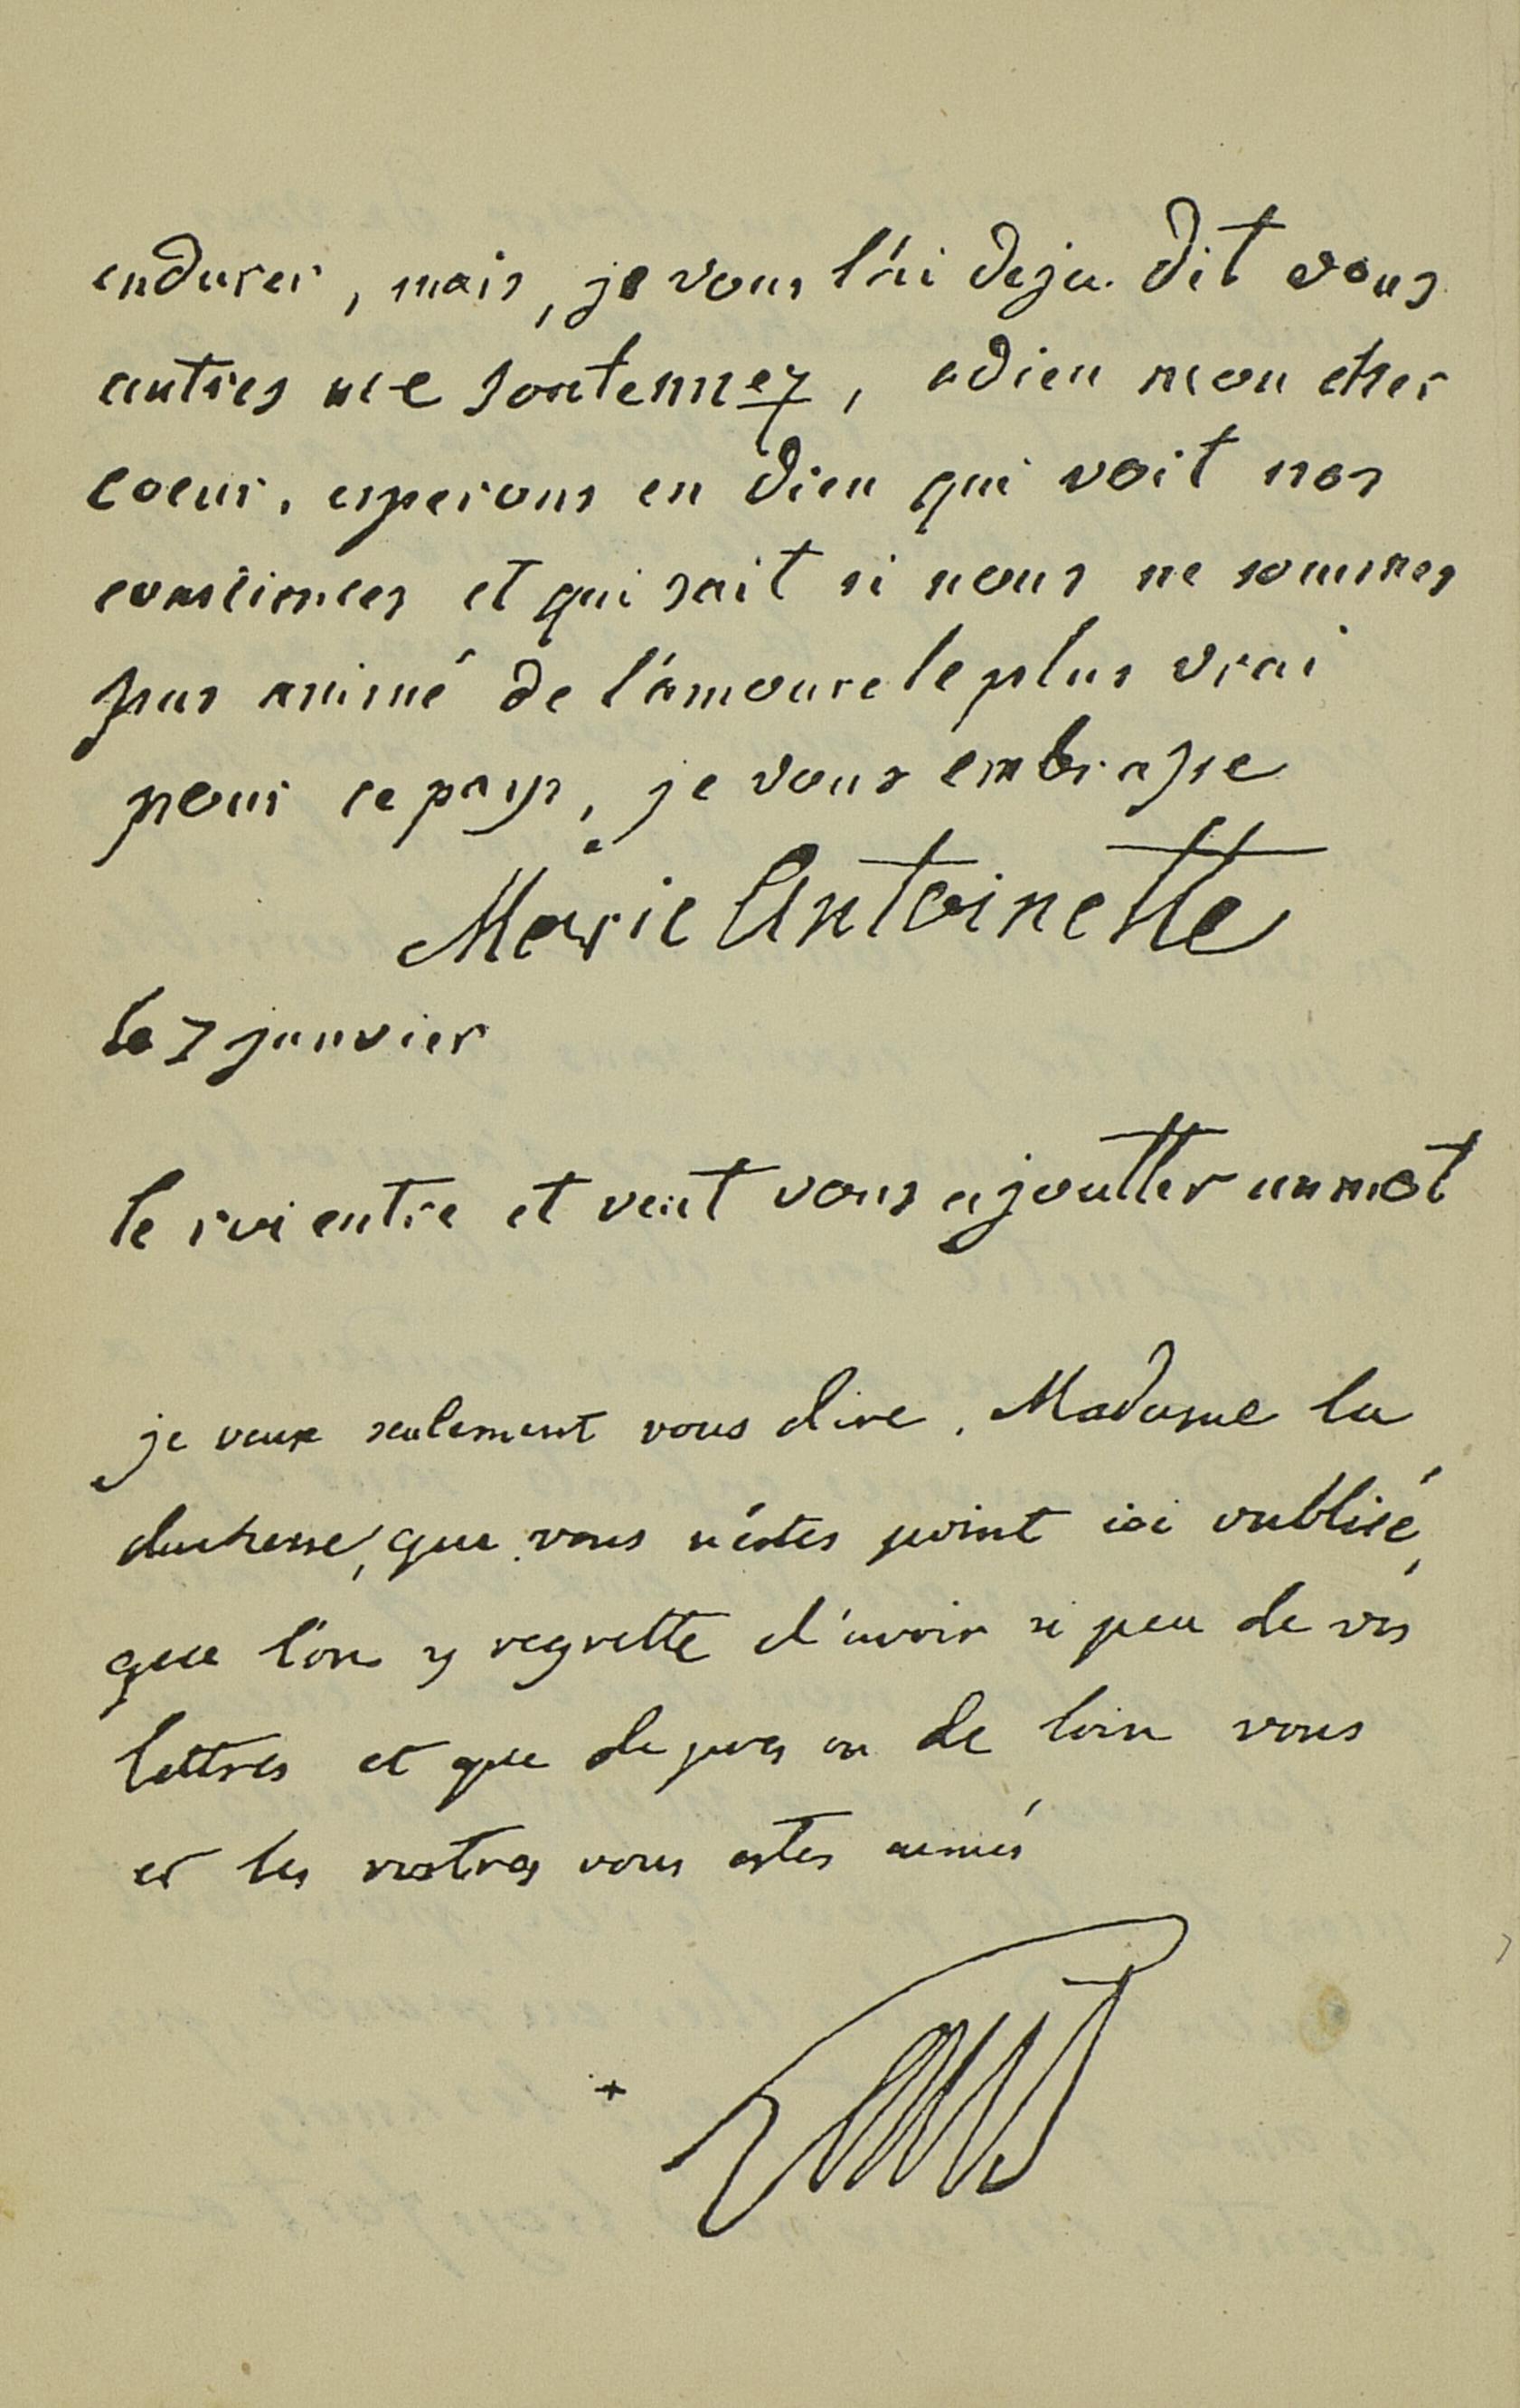 endurer, mais, je vous l'ai deja dit vous
autres me soutennez, adieu mon cher
coeur, esperons en dieu qui voit nos
consciences et qui sait si nous ne sommes
pas animé de l'amoure le plus vrai
pour ce pays, je vous embrasse
Marie Antoinette
le 7 janvier
le roi entre et veut vous ajoutter un mot
je veux seulement vous dire, Madame la
duchesse, que vous n'éstes point ici oubliié,
que l'on y regrette d'avoir si peu de vos
lettres et que de pres ou de loin vous
et les vostres vous estes aimés
+ Louis